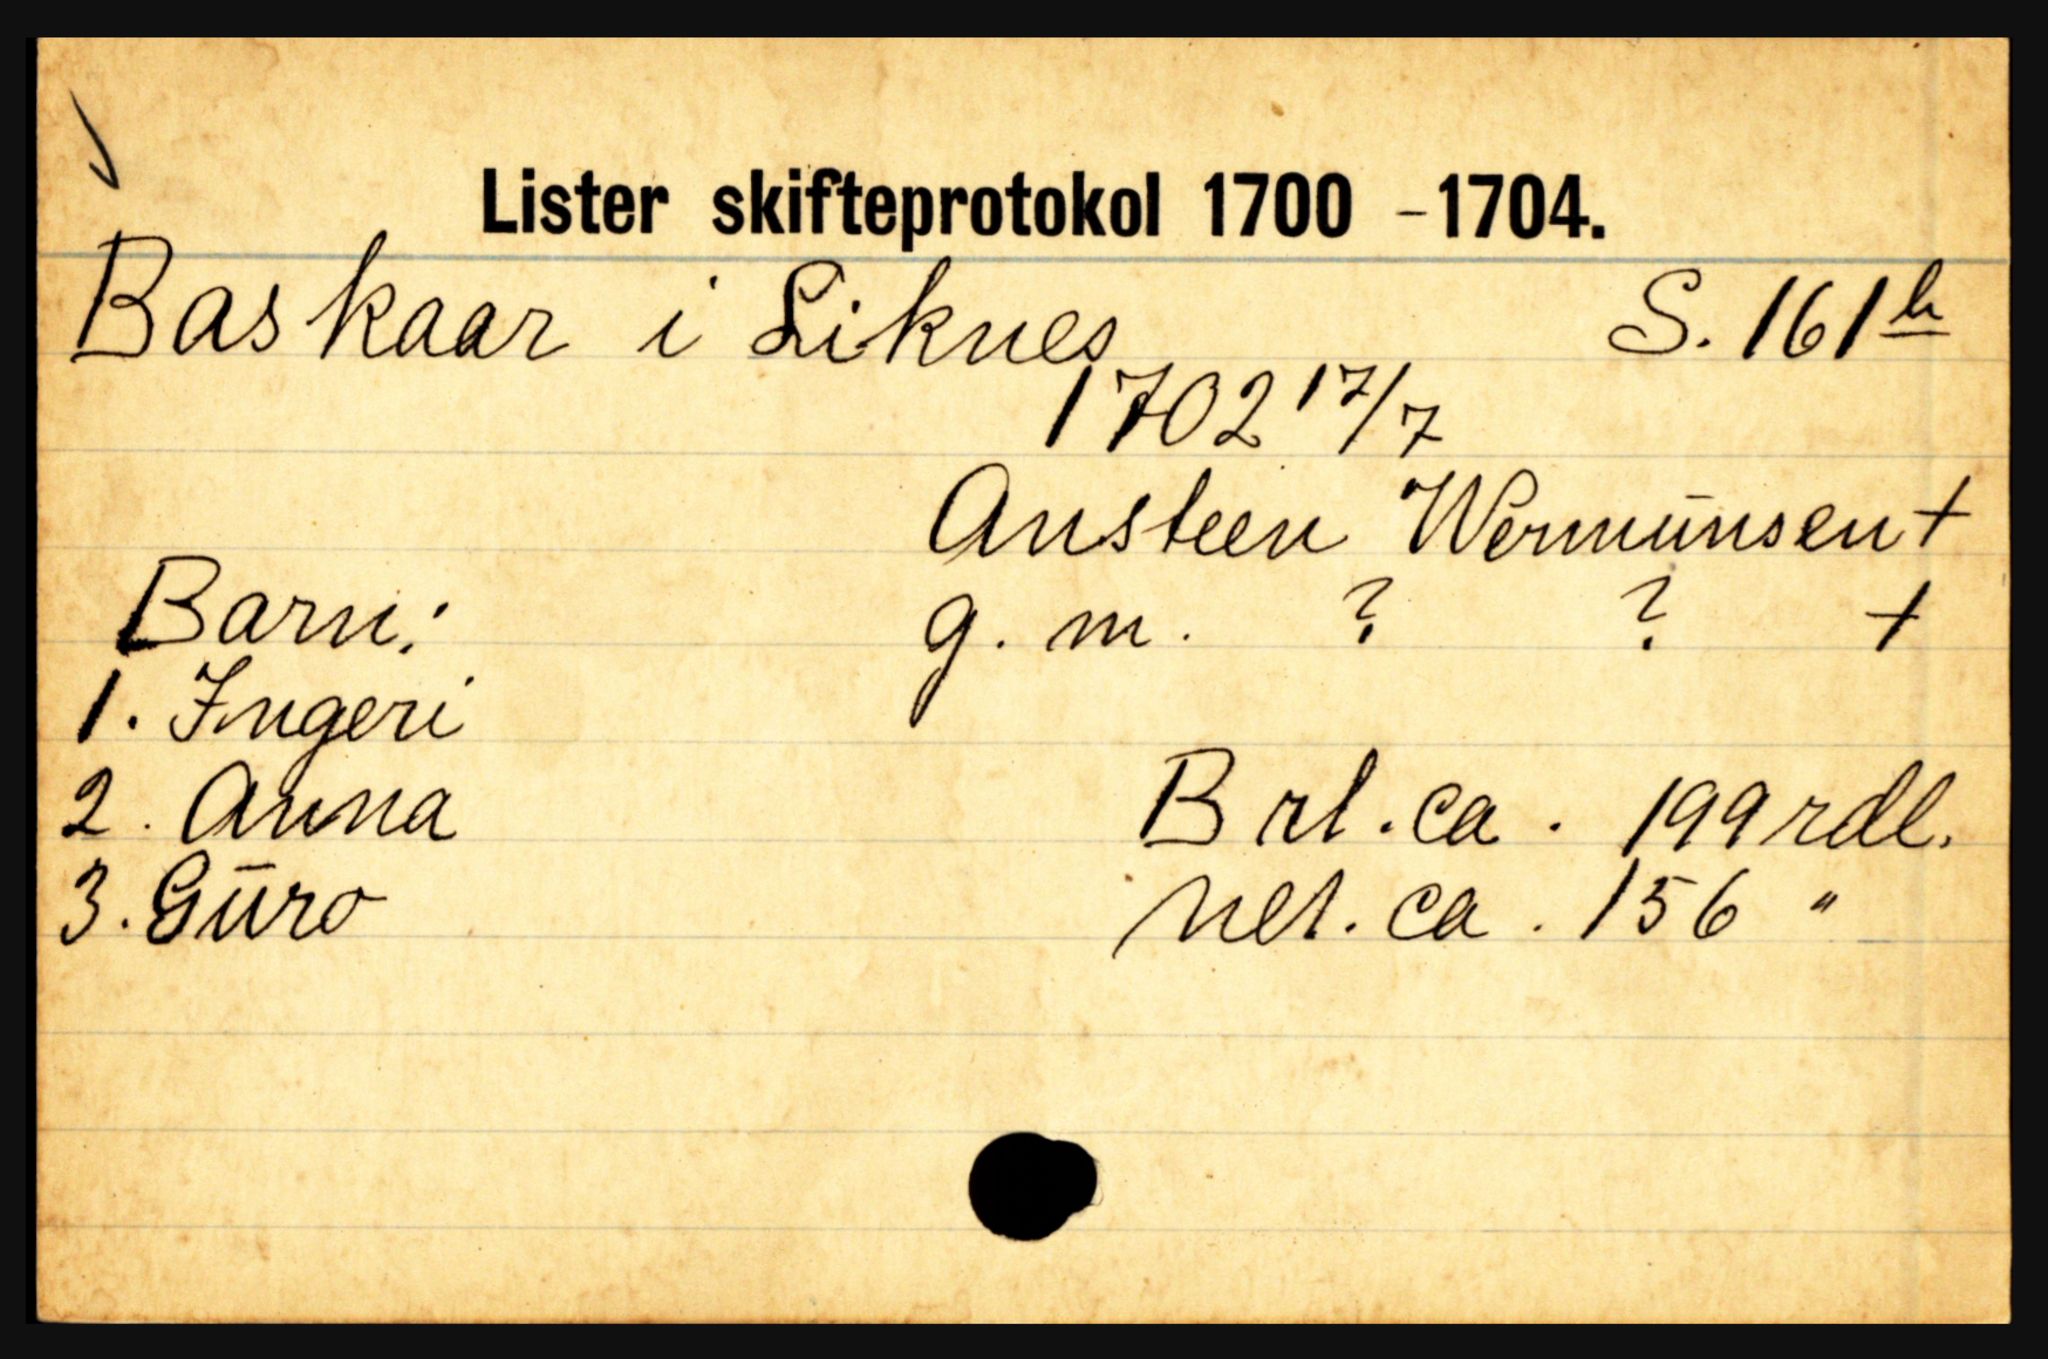 Lister skifteprotokol 1700 - 1704.
Baskaar i Liknes S. 161 b
1702 17/7
Austeen Wermunsen +
Barn: g. m. ? ? +
1. Ingeri
2. Anna Brt. ca. 199 rdl.
3. Guro net. ca. 156 "